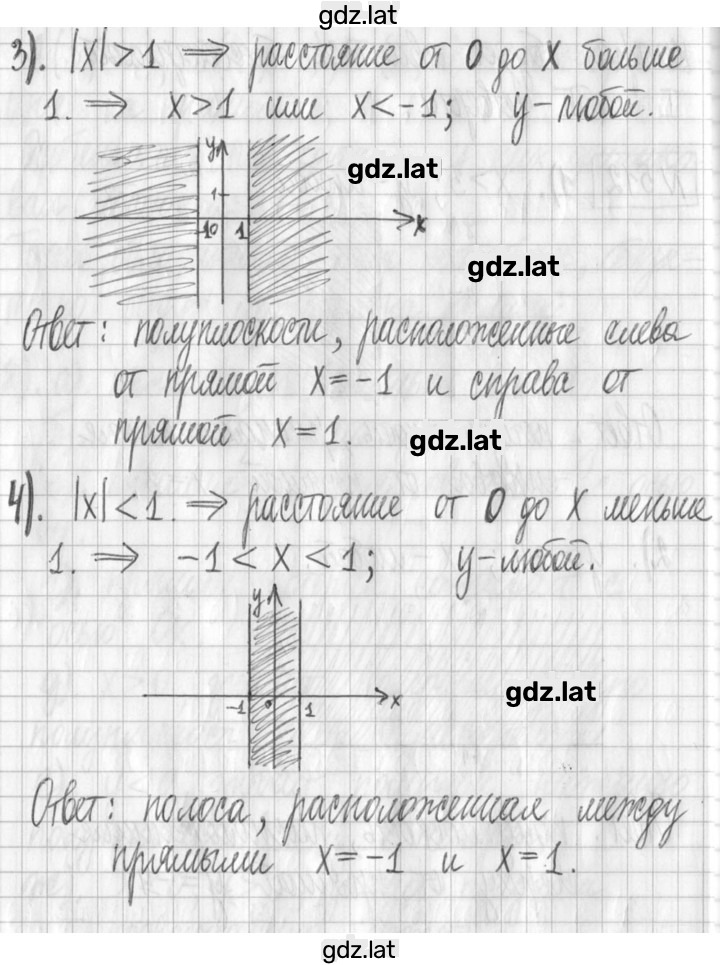 gdz.lat
3). |x|>1 ⇒ расстояние от 0 до x больше
1. ⇒ x>1 или x<-1; y-любой.
y
gdz.lat
1
-1 0 1 x
gdz.lat
Ответ: полуплоскости, расположенные слева
от прямой x=-1 и справа от
прямой x=1.
gdz.lat
4). |x|<1. ⇒ расстояние от 0 до x меньше
1. ⇒ -1<x<1; y-любой.
y
gdz.lat
-1 0 1 x
Ответ: полоса, расположенная между
прямыми x=-1 и x=1.
gdz.lat